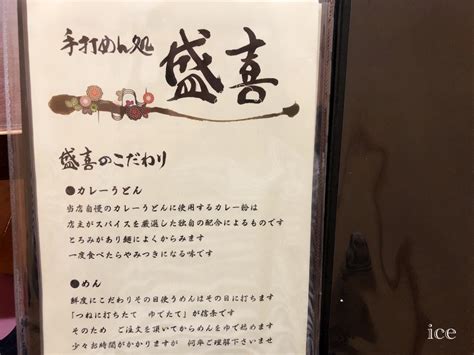 手打めん処
盛喜
盛喜のこだわり
●カレーうどん
当店自慢のカレーうどんに使用するカレー粉は
店主がスパイスを厳選した独自の配合によるものです
とろみがあり麺によくからみます
一度食べたらやみつきになる味です
●めん
鮮度にこだわりその日使うめんはその日に打ちます
「つねに打ちたて ゆでたて」が信条です
そのため ご注文を頂いてからめんをゆで始めます
少々お時間がかかりますが 何卒ご理解下さいませ
ice